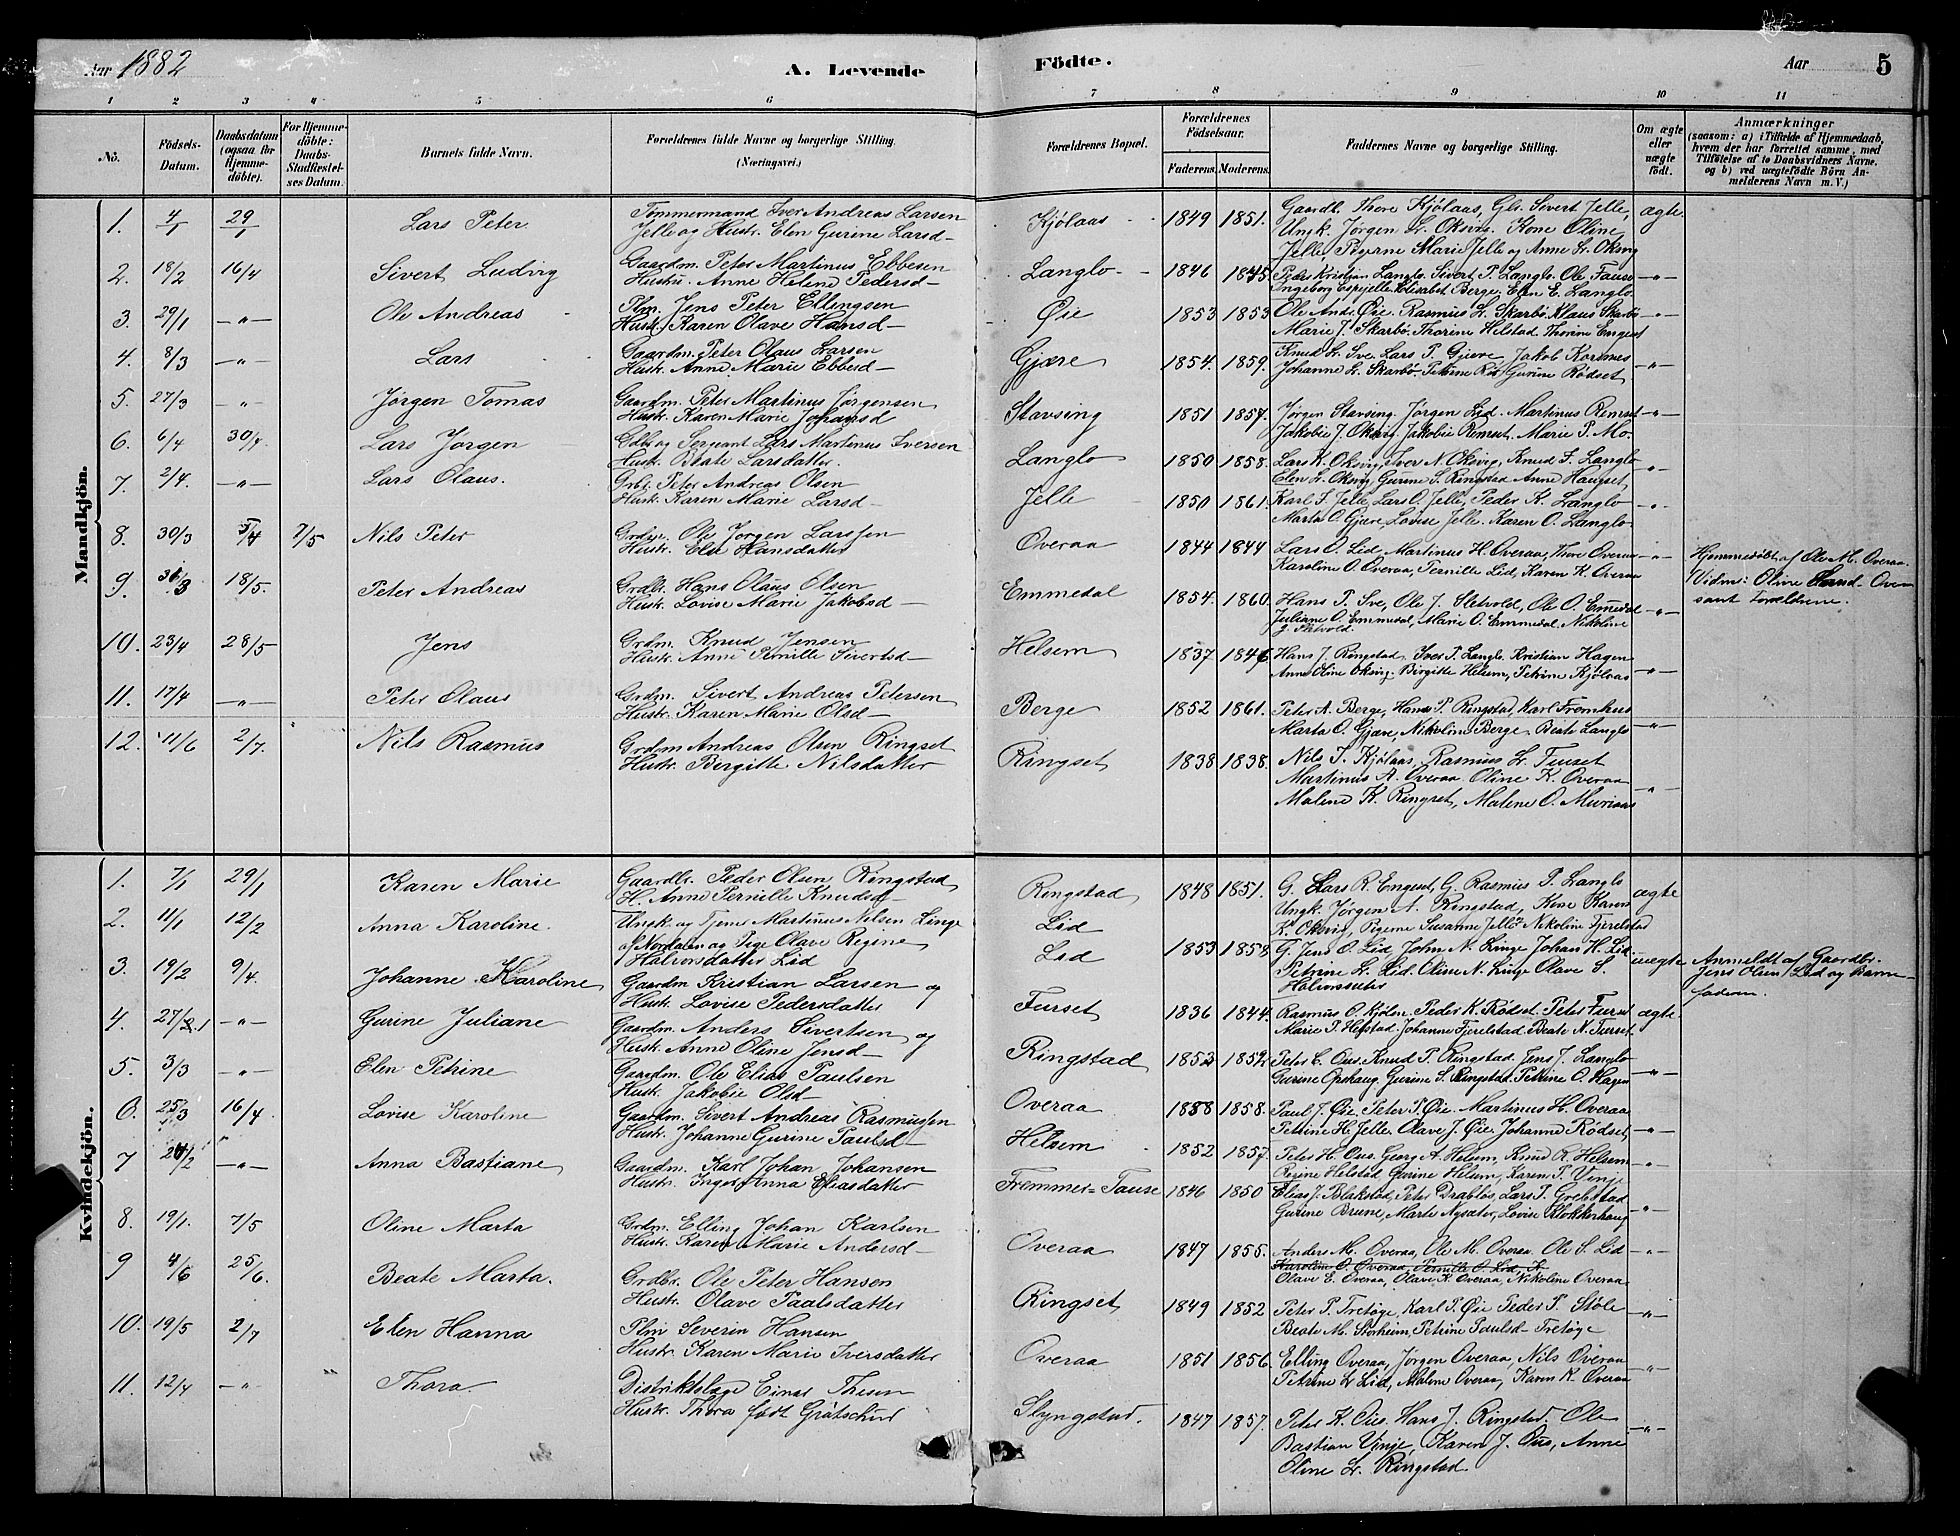 Aar 1882
A. Levende
Födte.
Aar
5
1 2 3 4 5 6 7 8 9 10 11
No.
Födsels-Datum.
Daabsdatum (ogsaa for Hjemme-döbte).
For Hjemme-döbte: Daabs-Stadfæstel-ses Datum.
Barnets fulde Navn.
Forældrenes fulde Navne og borgerlige Stilling.
(Næringsvei.)
Forældrenes Bopæl.
Forældrenes Födselsaar.
Faderens. Moderens.
Faddernes Navne og borgerlige Stilling.
Om ægte eller uægte födt.
Anmærkninger
(saasom: a) i Tilfælde af Hjemmedaab,
hvem der har forrettet samme, med
Tilföielse af to Daabsvidners Navne.
og b) ved uægtefödte Börn An-
melderens Navn m. V.)
Mandkjön.
1. 4/1 29/1 Lars Peter
Tömmermand Iver Andreas Larsen
Jelle og Hustr. Elen Gurine Larsd-
Kjölaas 1849 1851.
Gaardb. Thore Kjölaas, Gbr. Sivert Jelle,
Ungk. Jörgen L. Oksvig. Kone Oline
Jelle, Pigerne Marie Jelle og Anne L. Oksvig
ægte
2. 18/2 16/4 Sivert Ludvig
Gaardm. Peter Martinus Ebbesen
Hustru. Anne Helene Pedersd-
Langlo 1846 1845
Peder Kristian Langlo. Sivert P. Langlo. Ole Fause
Ingeborg Espejelle Elisabet Berge, Elen E. Langlo
-"-
3. 29/1 -"- Ole Andreas
Plm. Jens Peter Ellingsen
Hustr. Karen Olave Hansd-
Øie 1853 1853
Ole Andr. Øie. Rasmus L. Skarbö Klaus Skarbö
Marie J. Skarbö. Thorine Helstad. Thorine Engeset
-"-
4. 8/3 -"- Lars
Gaardm. Peter Olaus Larsen
Hustr. Anne Marie Ebbesd-
Gjære 1854. 1859.
Knud L. Sve. Lars P. Gjære, Jakob Korsnes
Johanne L. Skarbö. Petrine Gurine Rödset
-"-
5. 27/3 -"- Jörgen Tomas
Gaardm. Peter Martinus Jörgensen
Hustr. Karen Marie Johansd
Stavsing 1851 1857.
Jörgen Stavsing. Jörgen Lid. Martinus Remset
Jakobie J. Oksvig. Jakobie Remset. Marie P. Mo.
-"-
6. 6/4 30/4. Lars Jörgen
Gdb. og Sergeant Lars Martinus Iversen
Hustr. Beate Larsdatter.
Langlo 1850 1858.
Lars K. Oksvig, Iver N. Oksvig, Knud I. Langlo
Elen L. Oksvig, Gurine S. Ringstad Anne Haugset
-"-
7. 2/4. -"- Lars Olaus.
Grbr. Peter Andreas Olsen
Hustr. Karen Marie Larsd-
Jelle 1850 1861.
Karl I. Jelle, Lars O. Jelle, Peder K. Langlo
Marta O. Gjære, Lovise Jelle. Karen O. Langlo
-"-
8. 30/3 5/4 7/5 Nils Peter
Ole Jörgen Larssen
Hustr. Else Hansdatter
Overaa 1844 1844
Lars O. Lid, Martinus H. Overaa, Thore Overaa
Karoline O. Overaa, Pernille Lid, Karen K. Overaa
-"-
Hjemmedöbt af Ole M. Overaa.
Vidner: Oline
samt Forældrene.
9. 3 18/5. Peter Andreas
Grdbr. Hans Olaus Olsen
Hustr. Lovise Marie Jakobsd-
Emmedal 1854. 1860.
Hans P. Sve, Ole J. Sletvold, Ole O. Emedal
Juliane O. Emmedal, Marie O. Emmedal. Nikoline
J. Sletvold.
-"-
10. 23/4 28/5 Jens
Grdm. Knud Jensen
Hustr. Anne Pernille Sivertsd-
Helsem 1837 1846
Hans J. Ringstad. Iver P. Langlo. Kristian Hagen
Anne Oline Oksvig. Birgitte Helsem, Petrine Kjölaas
-"-
11. 17/4 -"- Peter Olaus
Grdm. Sivert Andreas Petersen
Hustr. Karen Marie Olsd-
Berge 1852 1861.
Peter A. Berge, Hans P. Ringstad, Karl Fremhus
Marta O. Gjære, Nikoline Berge, Beate Langlo
-"-
12. 11/6 2/7. Nils Rasmus
Grdm Andreas Olsen Ringset
Hustr. Bergitte Nilsdatter
Ringset 1838 1838.
Nils T. Kjölaas, Rasmus L. Furset
Martinus A. Overaa. Oline K. Overaa
Malene K. Ringset, Malene O. Muriaas
-"-
Kvindekjön.
1. 7/1 29/1 Karen Marie
Gaardbr. Peder Olsen Ringstad
H. Anne Pernille Knudsd-
Ringstad 1848 1851.
G. Lars R. Engeset, G. Rasmus P. Langlo
Ungk. Jörgen A. Ringstad, Kone Karen
K. Oksvig, Pigerne Susanne Jelle, Nikoline Fjerelstad
ægte
2. 11/1 12/2 Anna Karoline.
Ungk. og Tjener Martinus Nilsen Linge
af Nordalen og Pige Olave Regine
Halvorsdatter Lid
Lid
Lid 1853 1858
G. Jens O. Lid, John N. Linge Johan H. Lid
Petrine L. Lid. Oline N. Linge Olave S.
Halvorssæter
uægte
Anmeldt af Gaardbr.
Jens Olsen Lid og Barne-
faderen.
3. 19/2 9/4. Johanne Karoline
Gaardm Kristian Larsen og
Hustr. Lovise Pedersdatter
Furset 1836 1844.
Rasmus O. Kjölen. Peder K. Rödset. Peter Furset
Marie P. Helstad. Johanne Fjerelstad. Beate N. Furset
ægte
4. 27/1 -"- Gurine Juliane
Gaardm. Anders Sivertsen og
Hustr. Anne Oline Jensd-
Ringstad 1852 1852
Peter C. Ous. Knud P. Ringstad. Jens J. Langlo
Gurine Opshaug. Gurine S. Ringstad. Petrine O. Hagen
-"-
5. 3/3 -"- Elen Petrine
Gaardm. Ole Elias Paulsen
Hustr. Jakobie Olsd-
Overaa 1858 1858.
Paul J. Øie. Peter P. Øie. Martinus H. Overaa
Petrine H. Jelle. Olave J. Øie. Johanne Rödset
-"-
6. 25/3 16/4 Lovise Karoline
Gaardm. Sivert Andreas Rasmussen
Hustr. Johanne Gurine Paulsd-
Helsem 1852 1857.
Peter H. Ous. Georg A. Helsem, Knud R. Helsem
Regine Helstad. Gurine Helsem, Karen P. Vinje
-"-
7 20/2 -"- Anna Bastiane
Gaardm. Karl Johan Johansen
Hustr. Inger Anna Eliasdatter
Fremmer-Fause 1846 1850
Elias J. Blakstad, Peter Drablös, Lars P. Grebstad
Gurine Brune, Marte Nysæter, Lovise Klokkerhaug
-"-
8. 19/1. 7/5 Oline Marta
Grdm. Elling Johan Karlsen
Hustr. Karen Marie Andersd-
Overaa 1847 1855.
Anders M. Overaa, Ole M. Overaa. Ole S. Lid
Karoline O. Overaa, Pernille O. Lid, K
Olave E. Overaa, Olave K. Overaa, Nikoline Overaa
-"-
9 4/6 25/6. Beate Marta.
Grdbr. Ole Peter Hansen
Hustr. Olave Paalsdatter
Ringset 1849 1852
Peter P. Tretöge, Karl P. Øie Peder P. Stöle
Beate M. Storheim, Petrine Paulsd- Tretöge
-"-
10. 19/5 2/7 Elen Hanna
Plm Severin Hansen
Hustr. Karen Marie Iversdatter
Overaa 1851 1856.
Elling Overaa, Jörgen Overaa, Nils Overaa
Petrine L. Lid, Malene Overaa, Karen K. Overaa
-"-
11. 12/4 -"- Thora.
Distriktslæge Einar Thesen
Hustr. Thora födt
Slyngstad. 1847 1857.
Peter K. Ous. Hans J. Ringstad. Ole
Bastian Vinje, Karen J. Ous, Anne
Oline L. Ringstad
-"-